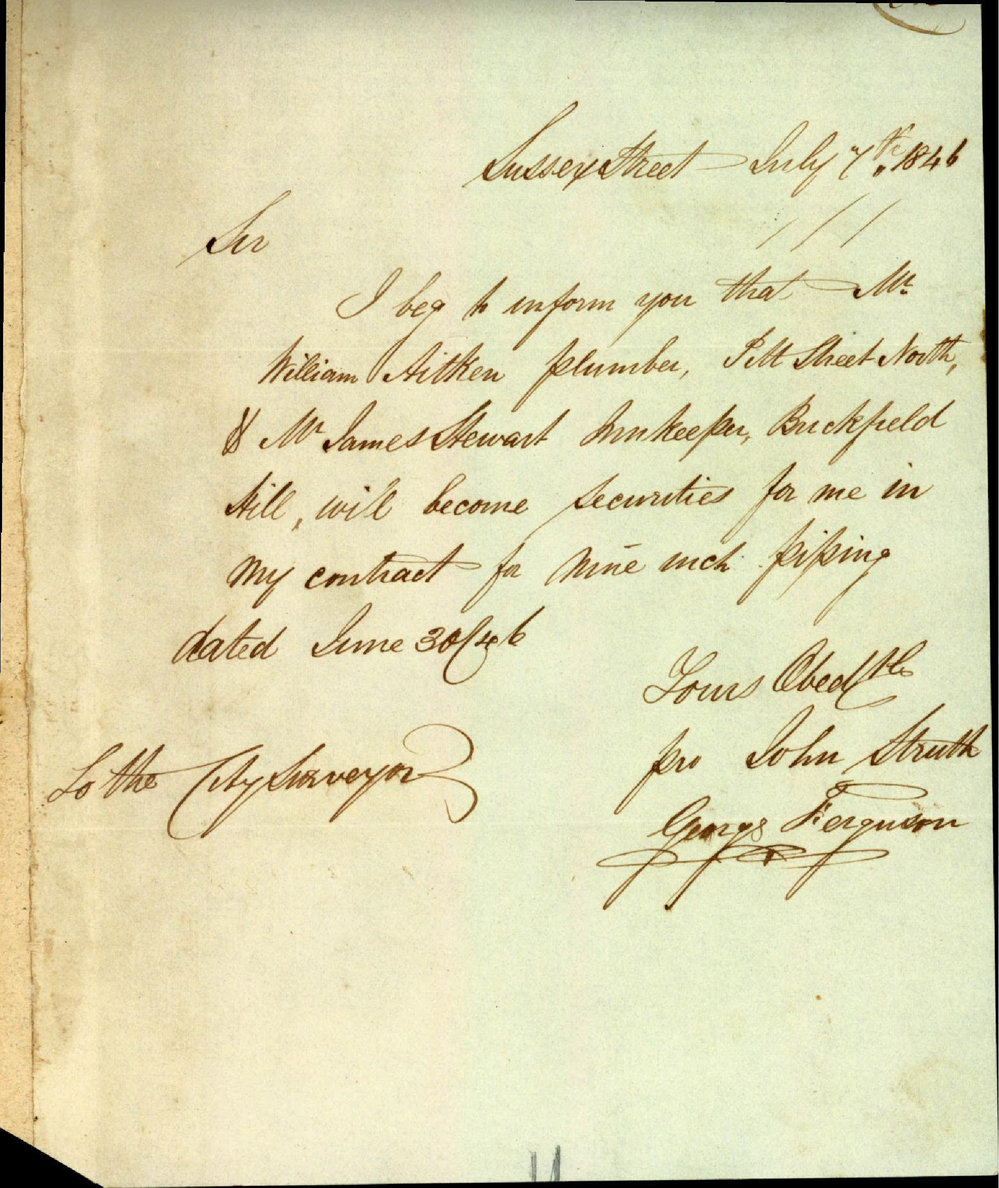 Sussex Street July 7th, 1846
Sir
I beg to inform you that Mr
William Aitken plumber, Pitt Street North,
& Mr James Stewart Innkeeper, Brickfield
Hill, will become securities for me in
my contract for nine inch piping
dated June 30/46
Yours Obedtly
pro John Struth
George Ferguson
To the City Surveyor